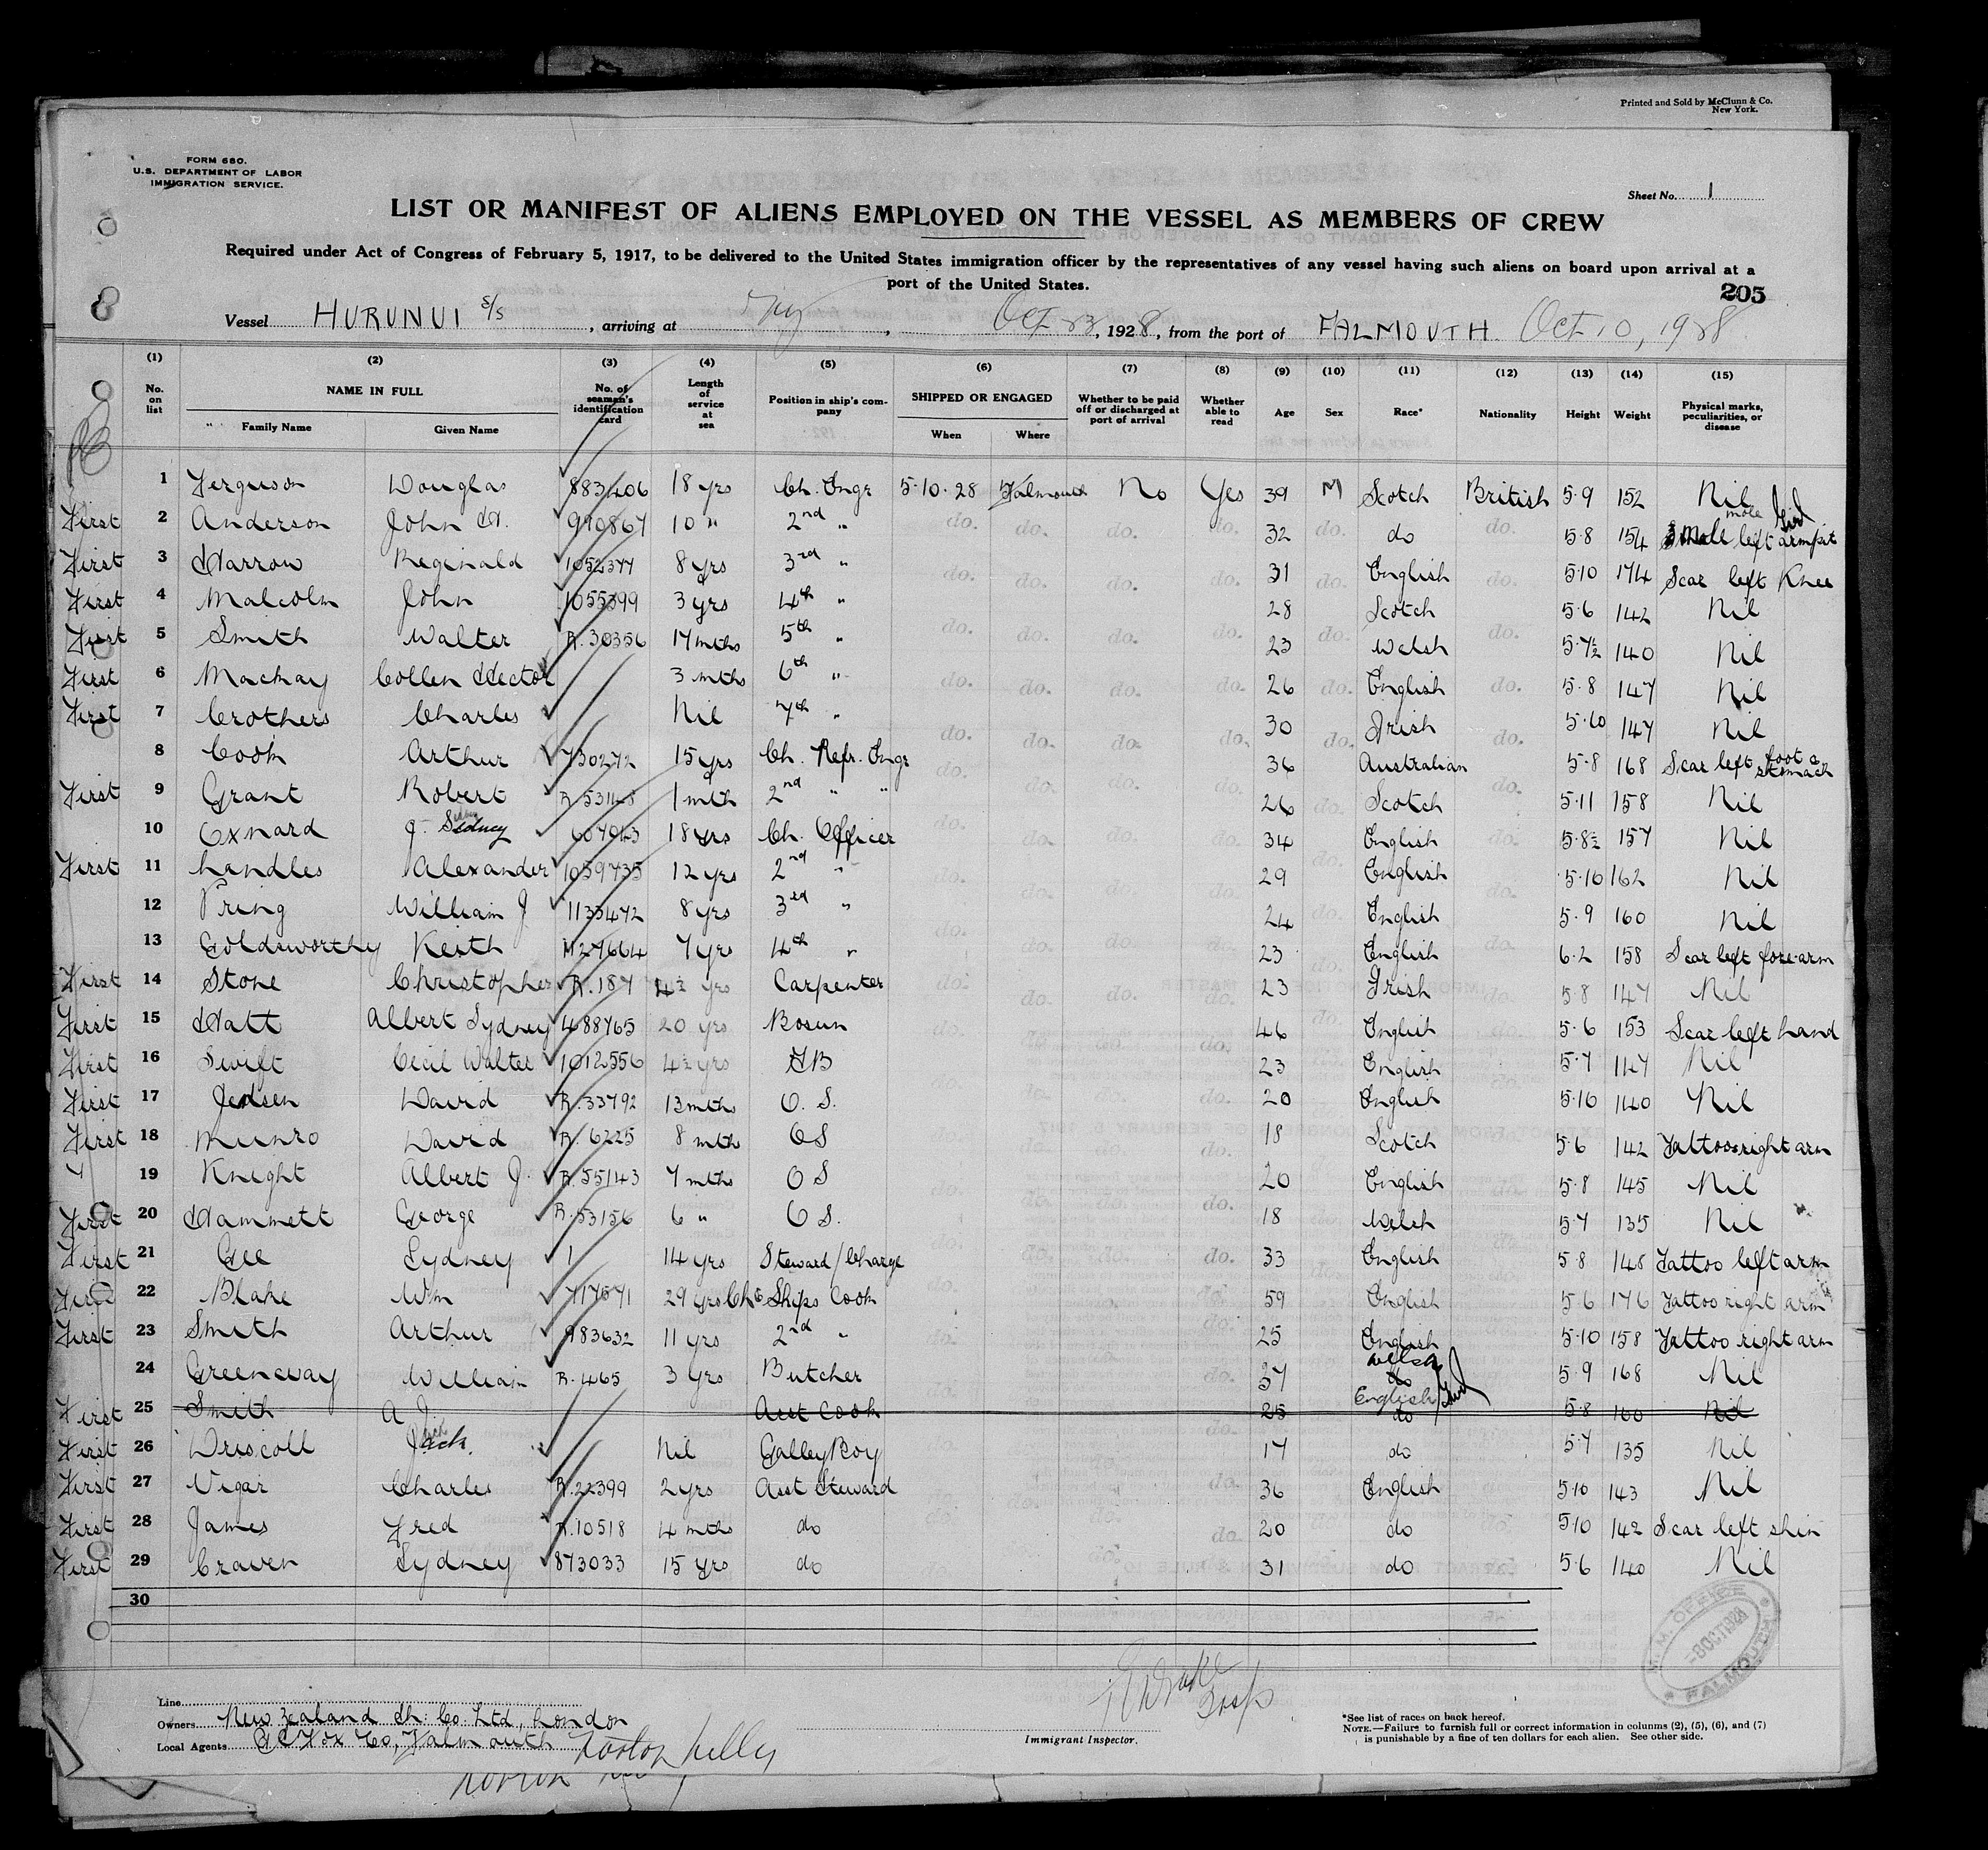 Printed and Sold by McClunn & Co.
New York.
FORM 680.
U.S. DEPARTMENT OF LABOR
IMMIGRATION SERVICE.
Sheet No. 1
LIST OR MANIFEST OF ALIENS EMPLOYED ON THE VESSEL AS MEMBERS OF CREW
Required under Act of Congress of February 5, 1917, to be delivered to the United States immigration officer by the representatives of any vessel having such aliens on board upon arrival at a
port of the United States.
205
Vessel HURUNUI S/S, arriving at N.Y., Oct 23, 1928, from the port of FALMOUTH. Oct 10, 1928
(1) (2) (3) (4) (5) (6) (7) (8) (9) (10) (11) (12) (13) (14) (15)
No. on list NAME IN FULL No. of seaman's identification card Length of service at sea Position in ship's company SHIPPED OR ENGAGED Whether to be paid off or discharged at port of arrival Whether able to read Age Sex Race* Nationality Height Weight Physical marks, peculiarities, or disease
Family Name Given Name When Where
1 Ferguson Douglas 883406 18 yrs Ch. Engr 5.10.28 Falmouth No Yes 39 M Scotch British 5.9 152 Nil
First 2 Anderson John H. 990867 10 " 2nd " do. do. do. do. 32 do. do do. 5.8 154 mole left armpit
First 3 Harrow Reginald 1052377 8 yrs 3rd " do. do. do. do. 31 do. English do. 5.10 174 Scar left Knee
First 4 Malcolm John 1055399 3 yrs 4th " 28 Scotch 5.6 142 Nil
First 5 Smith Walter R.30356 17 mths 5th " do. do. do. do. 23 do. Welsh do. 5.7½ 140 Nil
First 6 Mackay Collen Hector 3 mths 6th " do. do. do. do. 26 do. English do. 5.8 147 Nil
First 7 Crothers Charles Nil 7th " do. do. do. do. 30 do. Irish do. 5.10 147 Nil
8 Cook Arthur 730272 15 yrs Ch. Refr. Engr do. do. do. do. 36 Australian 5.8 168 Scar left foot & stomach
First 9 Grant Robert R 53148 1 mth 2nd " " do. do. do. 26 do. Scotch do. 5.11 158 Nil
10 Oxnard J. Sidney 607943 18 yrs Ch. Officer do. do. do. do. 34 English do. 5.8½ 157 Nil
First 11 Landles Alexander 1059735 12 yrs 2nd " do. do. do. do. 29 do. English do. 5.10 162 Nil
12 Pring William J 1133472 8 yrs 3rd " do. do. do. do. 24 do. English do. 5.9 160 Nil
13 Goldsworthy Keith 1127664 7 yrs 4th " do. do. do. do. 23 English do. 6.2 158 Scar left fore-arm
First 14 Stone Christopher R.187 4½ yrs Carpenter do. do. do. do. 23 do. Irish do. 5.8 147 Nil
First 15 Hatt Albert Sydney 488765 20 yrs Bosun 46 English 5.6 153 Scar left hand
First 16 Swift Cecil Walter 1012556 4½ yrs AB 23 English 5.7 147 Nil
First 17 Jensen David R.33792 13 mths O. S. 20 English 5.10 140 Nil
First 18 Munro David R.6225 8 mths OS 18 Scotch 5.6 142 Tattoos right arm
" 19 Knight Albert J. R.55143 7 mths O S 20 English 5.8 145 Nil
First 20 Hammett George R.53156 6 " O S. do. 18 Welsh 5.7 135 Nil
First 21 Gee Sydney 14 yrs Steward/Charge do. 33 English 5.8 148 Tattoo left arm
First 22 Blake Wm 717571 29 yrs Ch & Ships Cook do. 59 English 5 6 176 Tattoo right arm
First 23 Smith Arthur 983632 11 yrs 2nd " 25 English 5.10 158 Tattoo right arm
24 Greenway William R.465 3 yrs Butcher 37 Welsh do 5.9 168 Nil
First 25 Smith A J. Asst Cook 25 English do 5.8 160 Nil
First 26 Driscoll Jack. Nil Galley Boy 17 do 5.7 135 Nil
First 27 Vigar Charles R.22399 2 yrs Asst Steward 36 English 5.10 143 Nil
First 28 James Fred R.10518 4 mths do 20 do 5.10 142 Scar left shin
First 29 Craven Sydney 873033 15 yrs do 31 do 5.6 140 Nil
30
M. M. OFFICE
-8 OCT 1928
FALMOUTH
Line
Owners New Zealand Sh. Co. Ltd, London
Local Agents G C Fox Co, Falmouth Norton Lilly
Immigrant Inspector.
*See list of races on back hereof.
NOTE.—Failure to furnish full or correct information in columns (2), (5), (6), and (7)
is punishable by a fine of ten dollars for each alien. See other side.